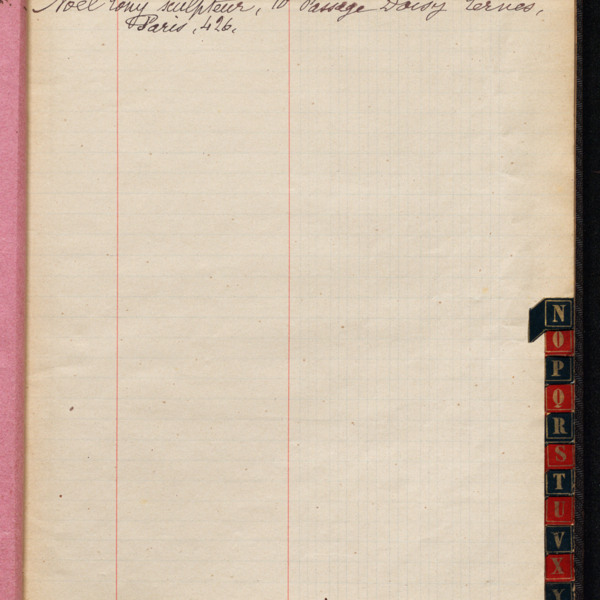 Noël Tony sculpteur, 10 Passage Doisy Ternes,
Paris, 426.
N
O
P
Q
R
S
T
U
V
X
Y